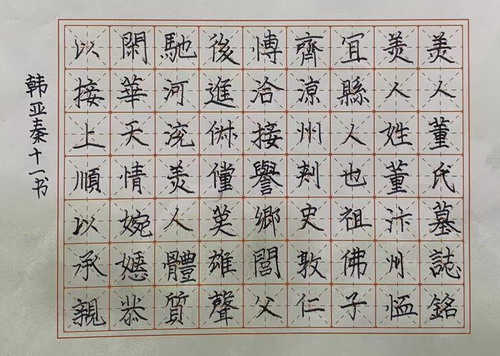 美人董氏墓誌銘
美人姓董汴州恤
宜縣人也祖佛子
齊涼州刾史敦仁
博洽接譽鄉閭父
後進俶儻英雄聲
馳河兗美人體質
閑華天情婉嫕恭
以接上順以承親
韩亚秦十一书